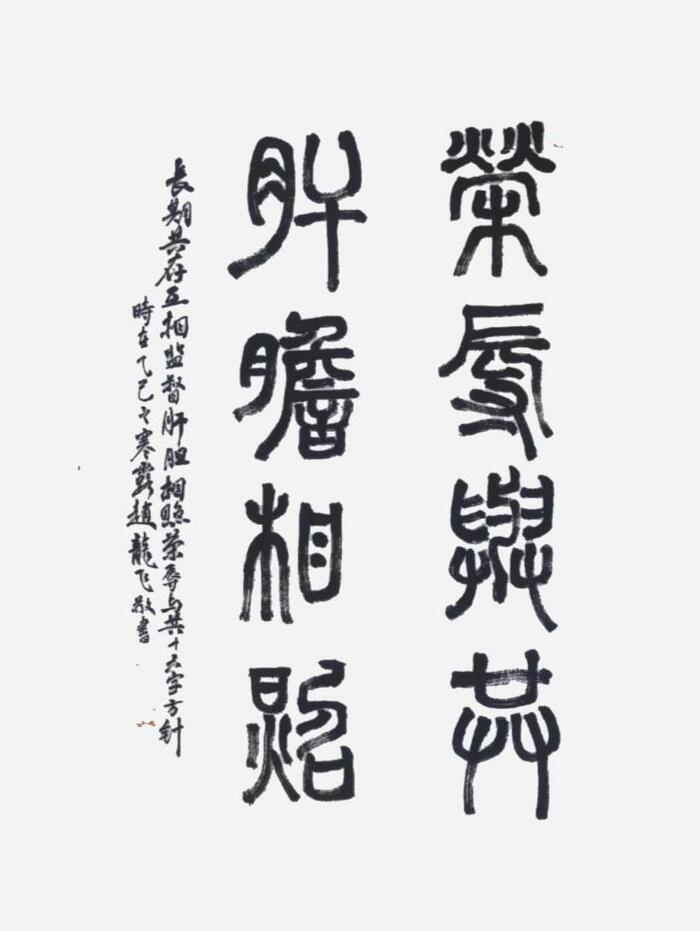 榮辱與共
肝膽相照
長期共存互相监督肝胆相照荣辱与共十六字方针
時在乙巳之寒露趙龍飞敬書